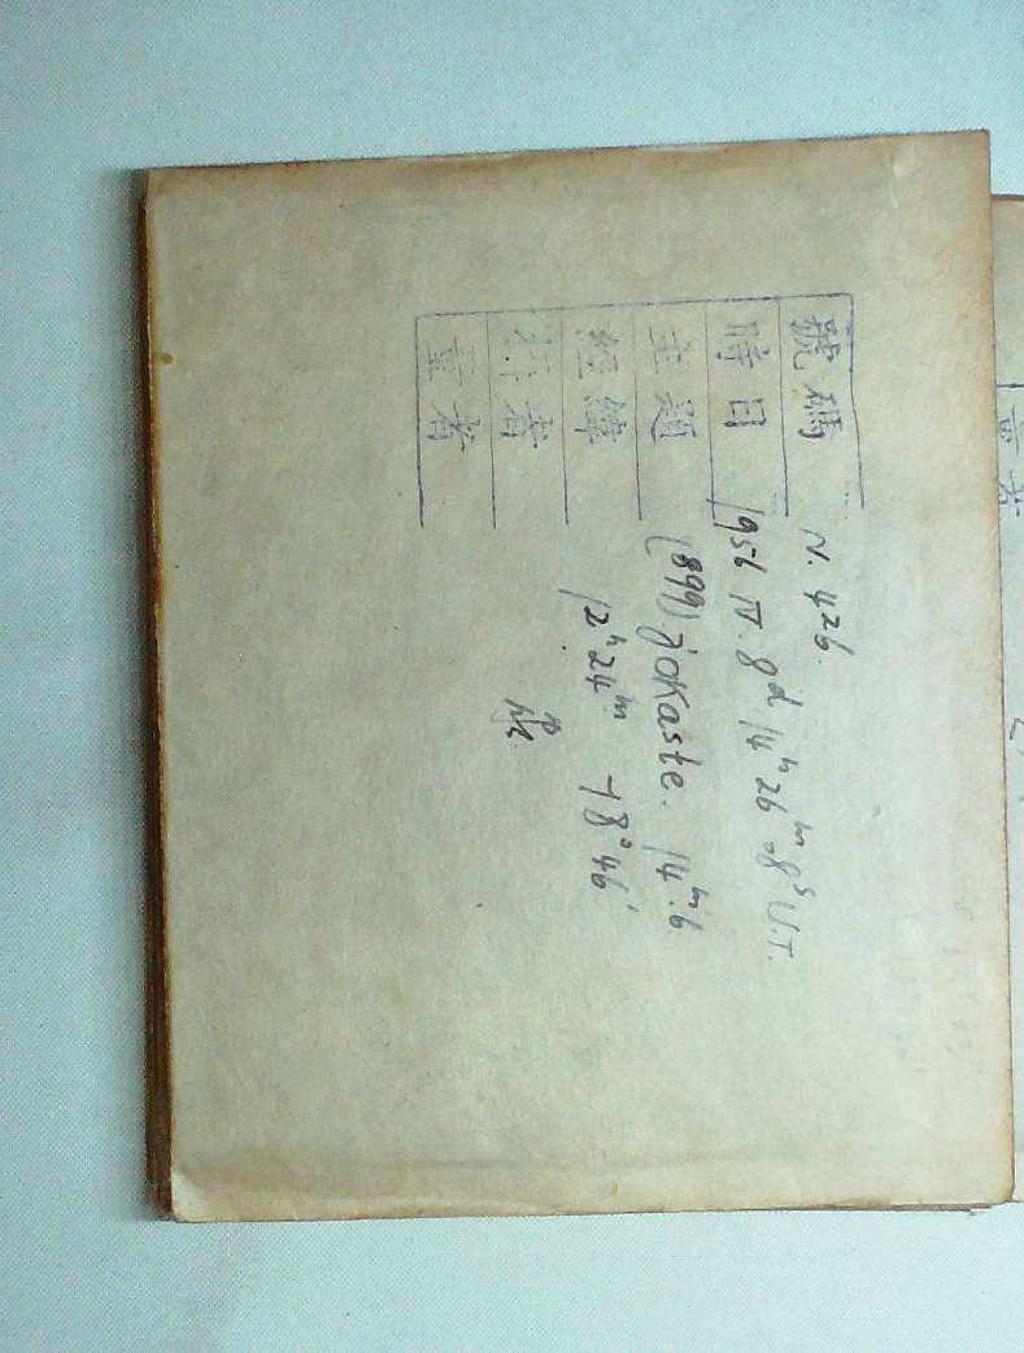 號碼 N. 426.
時日 1956 IV. 8ᵈ 14ʰ 26ᵐ.8ˢ U.T.
主題 (899) Jokaste. 14ᵐ.6
經緯 12ʰ24ᵐ +8°46′
者
者